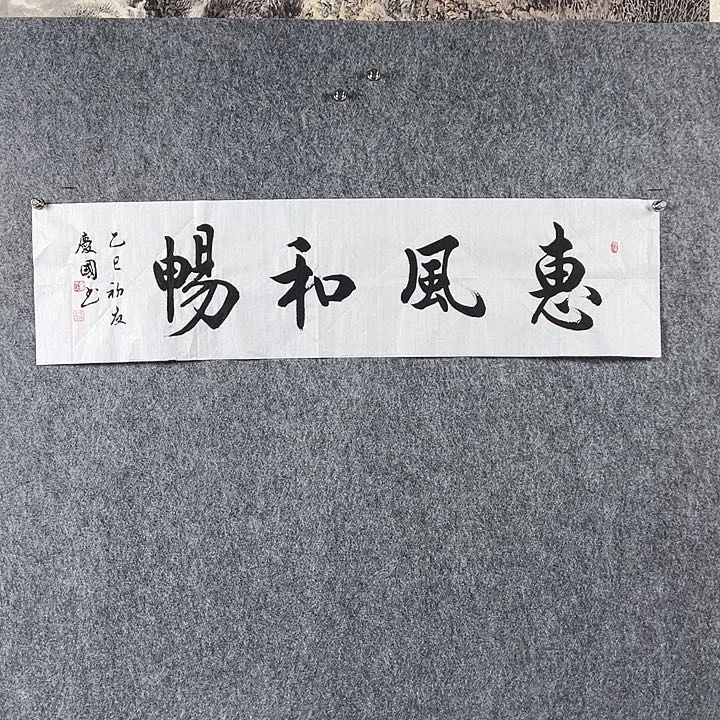 惠風和暢
乙巳初夏
慶國书